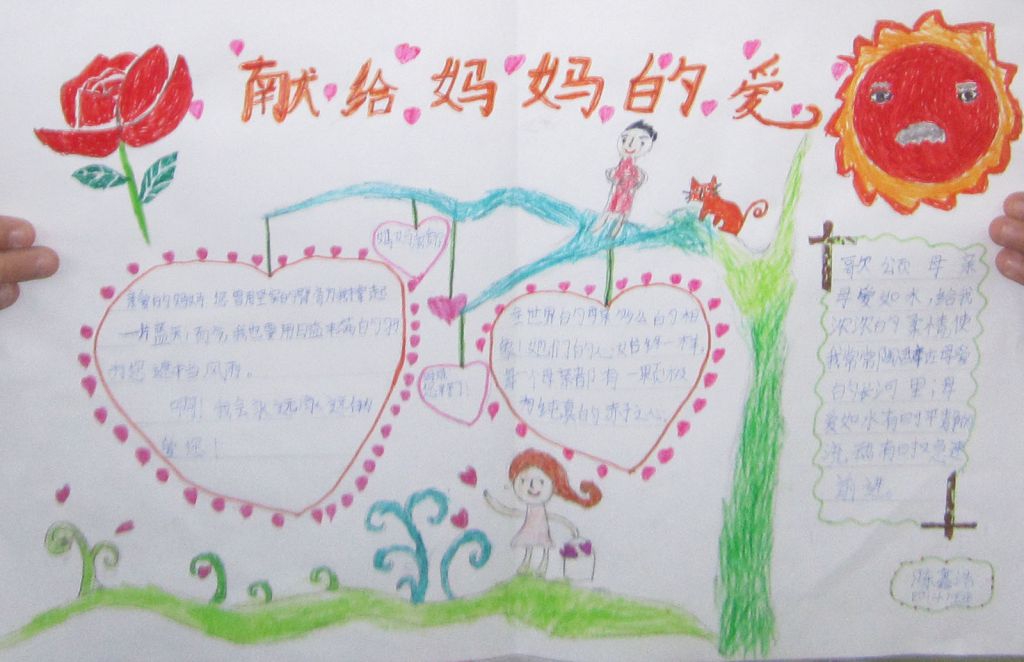 献给妈妈的爱
妈妈
亲爱的妈妈 您曾用坚实的臂膀为我撑起
一片蓝天；而今，我也要用日益丰满的羽
为您遮挡风雨。
啊！我会永远永远
爱您！
在世界的母亲多么的相
象！她们的心始终一样。
每一个母亲都有一颗极
为纯真的赤子之心
妈妈
歌颂母亲
母爱如水，给我
浓浓的柔情，使
我常常陶醉在母爱
的长河里；母
爱如水有时平静的
流动有时又急速
前进。
陈鑫